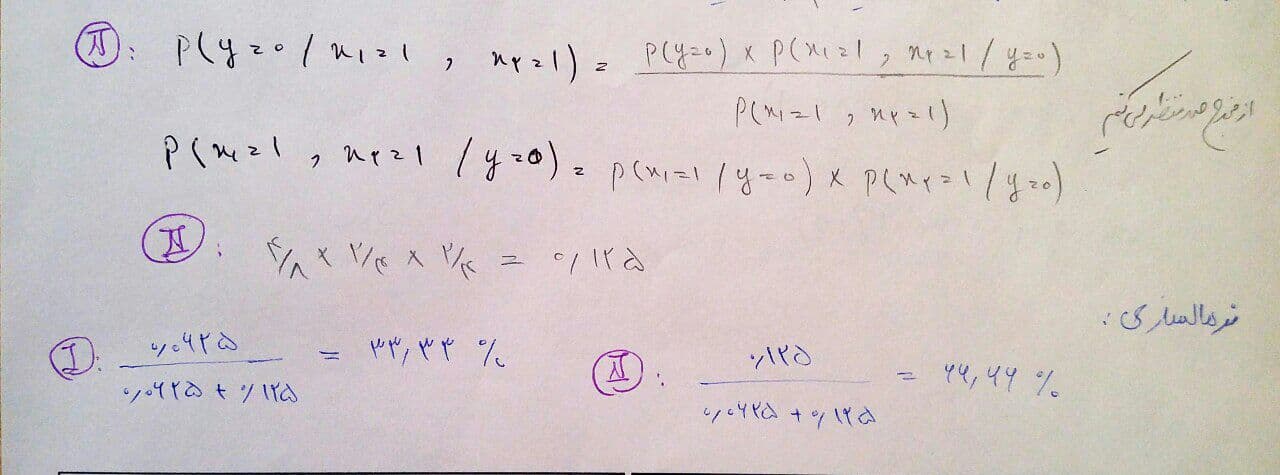 II: P(y=0 / x1=1 , x۲=1) = P(y=0) × P(x1=1 , x۲=1 / y=0)
P(x1=1 , x۲=1)
از مخرج صرفنظر می کنیم
P(x1=1 , x۲=1 / y=0) = P(x1=1 / y=0) × P(x۲=1 / y=0)
II: ۴/۸ × ۲/۴ × ۲/۴ = ۰/۱۲۵
نرمالسازی :
I: ۰/۰۶۲۵ / ۰/۰۶۲۵ + ۰/۱۲۵ = ۳۳,۳۳ %
II: ۰/۱۲۵ / ۰/۰۶۲۵ + ۰/۱۲۵ = ۶۶,۶۶ %